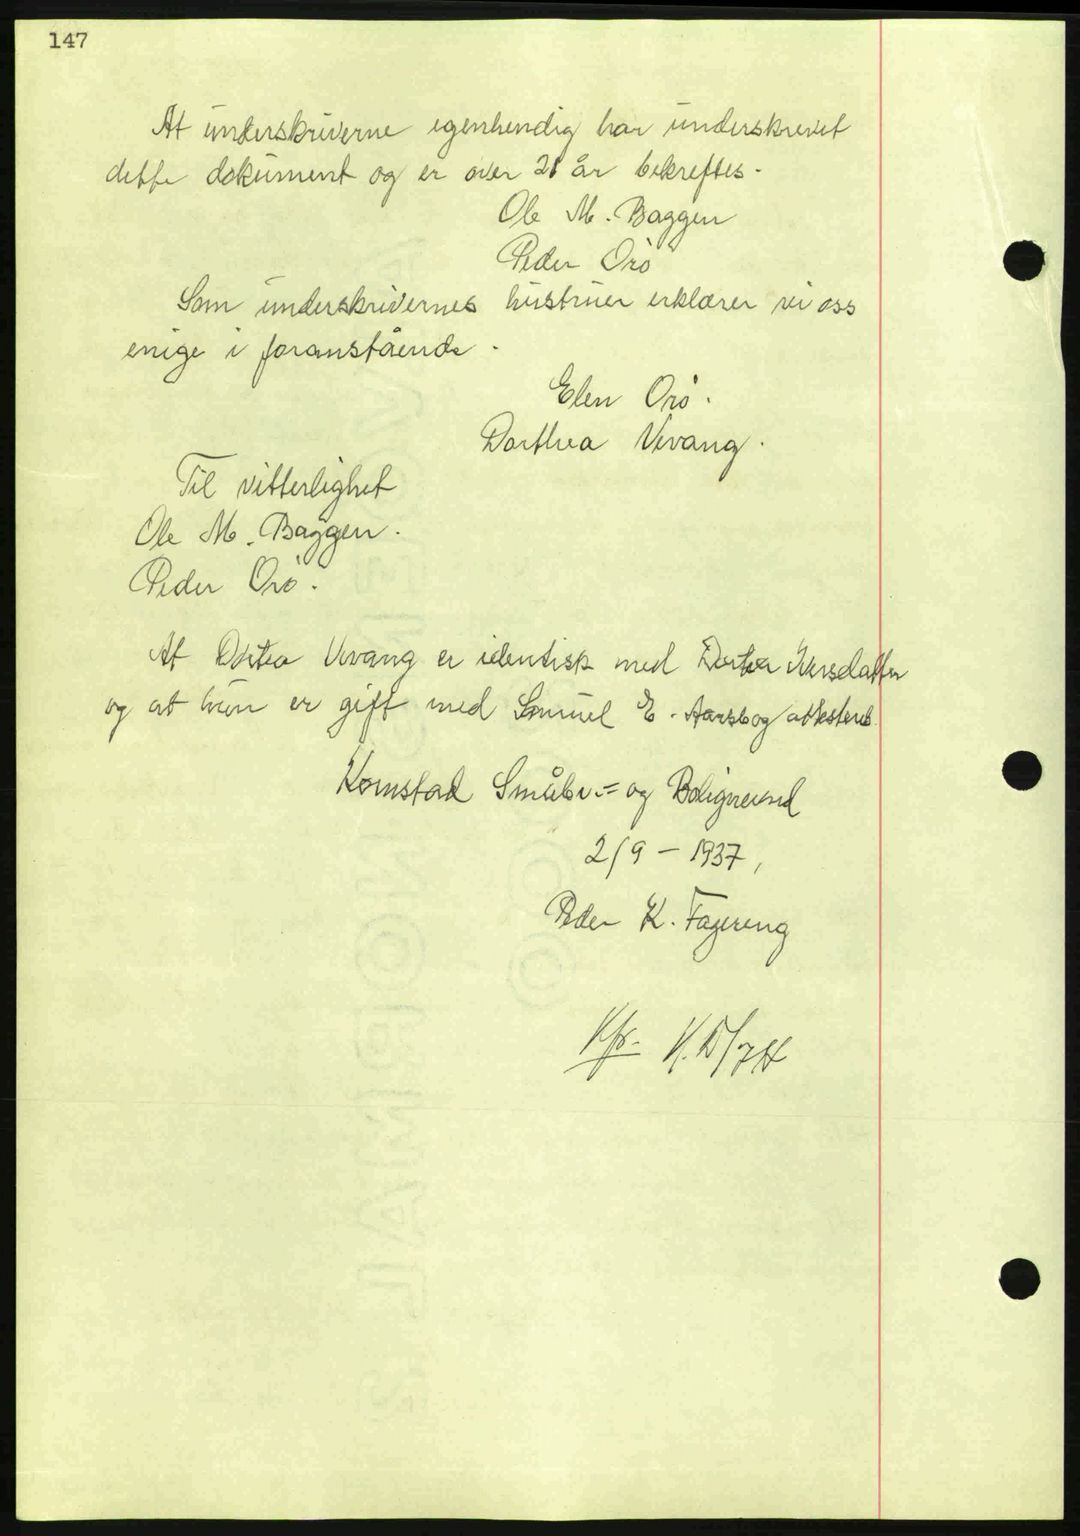 147
At underskriverne egenhendig har underskrevet
dette dokument og er over 21 år bekreftes.
Ole M. Baggen
Peder Orö
Som underskrivernes hustruer erklærer vi oss
enige i foranstående.
Elen Orö.
Dorthea Vevang.
Til vitterlighet
Ole M. Baggen.
Peder Orö.
At Dortea Vevang er identisk med Dortea Iversdatter
og at hun er gift med Samuel E. Aarsbog attesteres
Kornstad Småbr.- og Bolignevnd
2/9 - 1937,
Peder K. Fagereng